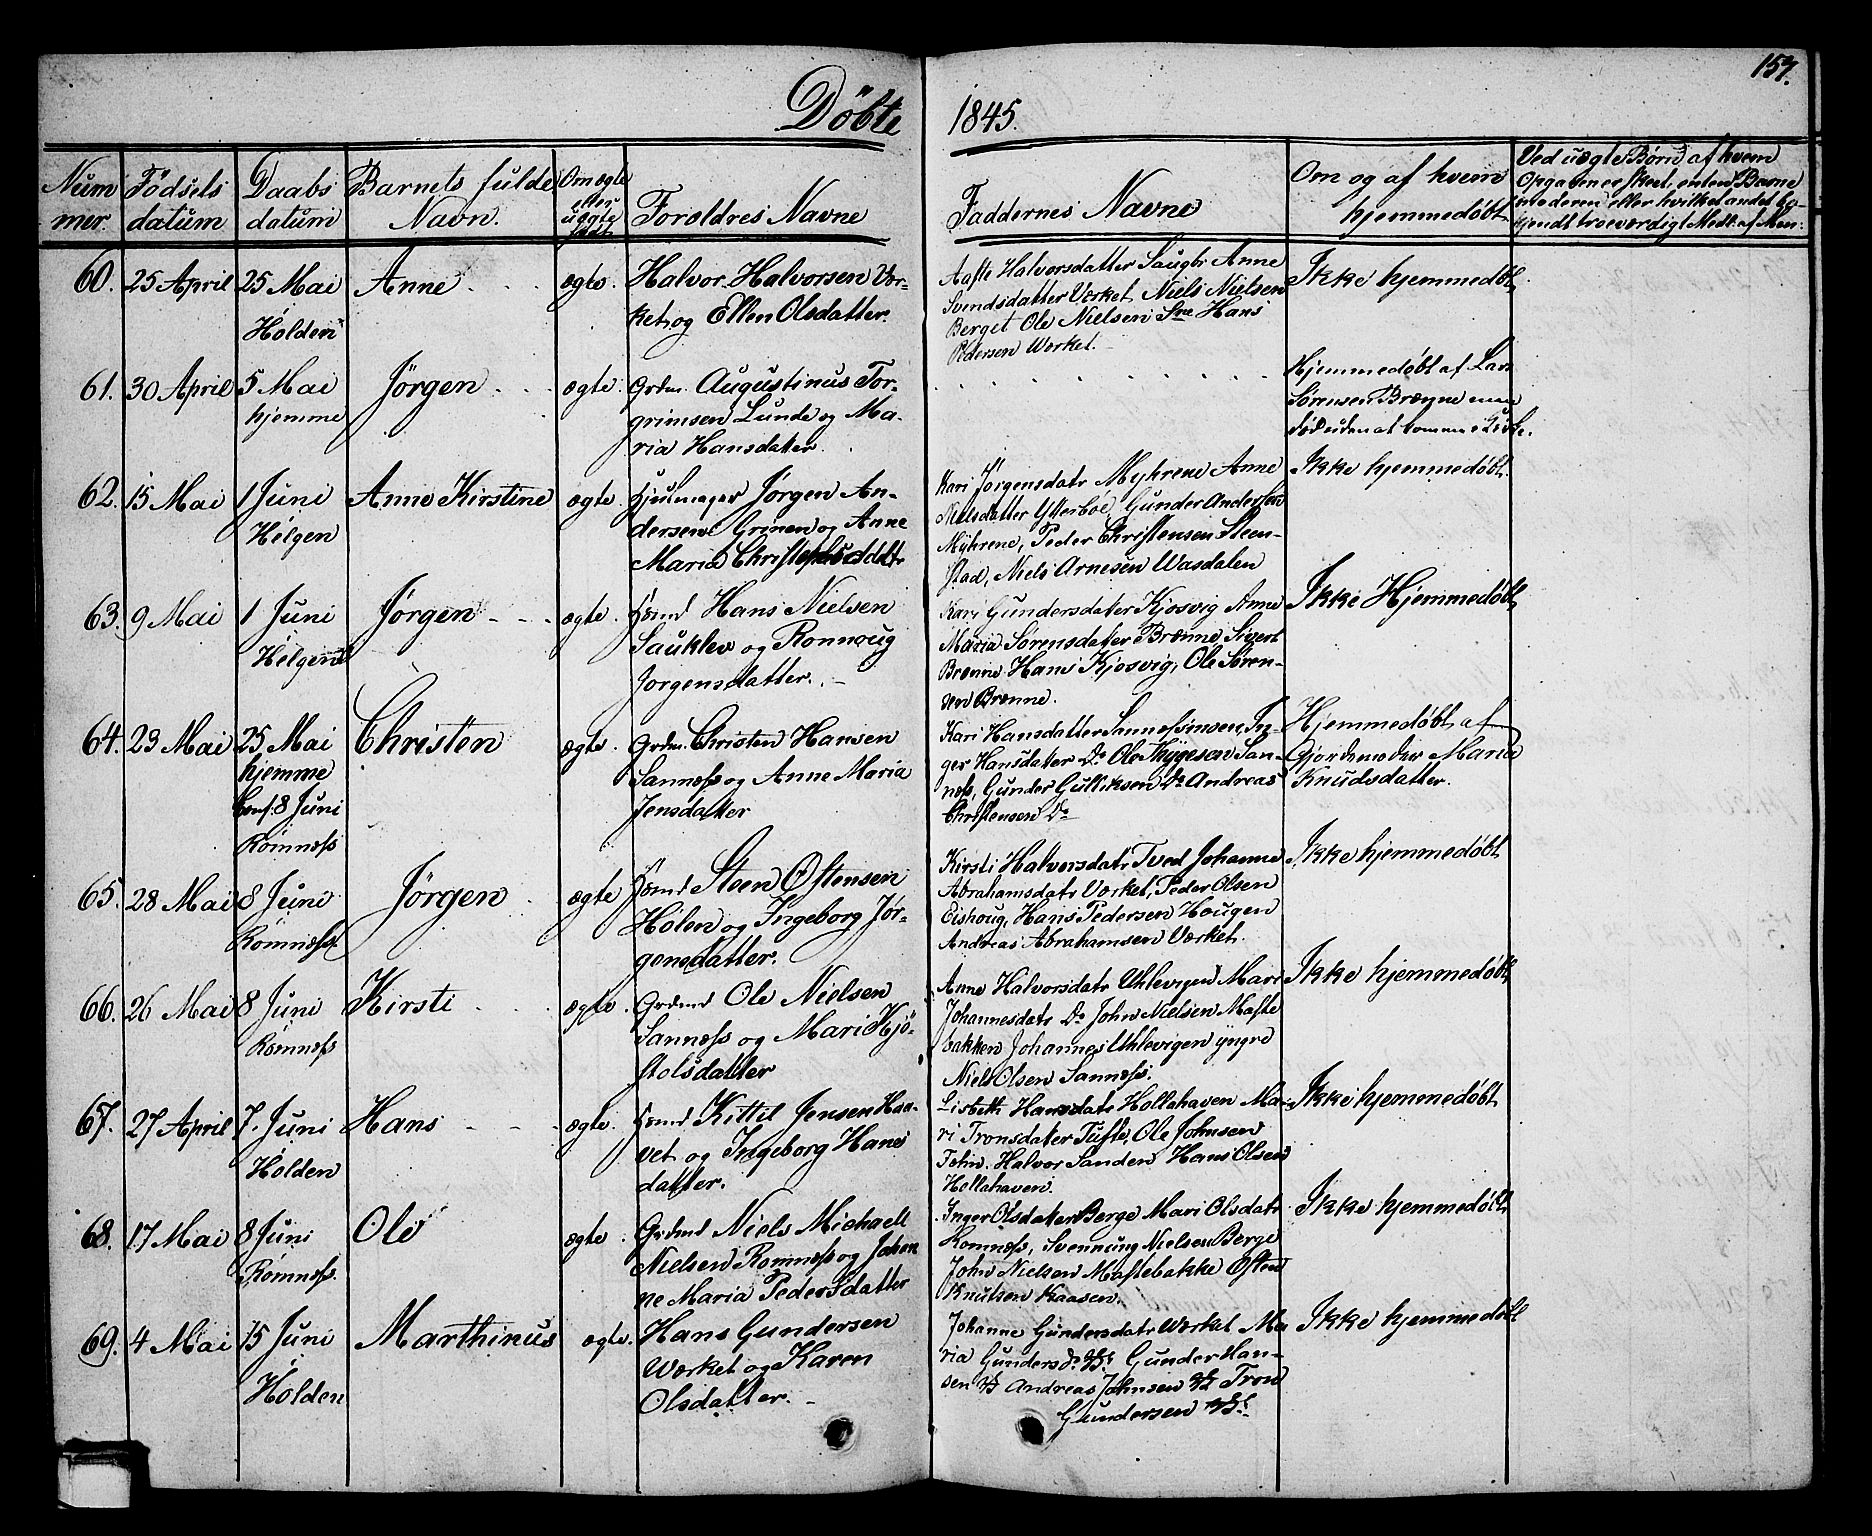 157.
Döbte 1845.
Num mer.
Födsels datum
Daabs datum
Barnets fulde Navn.
Om ægte eller uægte født
Forældres Navne
Faddernes Navne
Om og af hvem hjemmedøbt
Ved uægte Børn af hvem
Opgaven er skeet, enten Barne
moderen eller hvilket andet be
kjendt troeværdigt Medl. af Men:
60. 25 April 25 Mai Holden
Anne
ægte
Halvor Halvorsen Vær-
ket og Ellen Olsdatter.
Aaste Halvorsdatter Saugbr Anne
Svendsdatter Værket Niels Nielsen
Berget Ole Nielsen Sne Hans
Pedersen Werket.
Ikke hjemmedøbt
61. 30 April 5 Mai hjemme
Jörgen
ægte.
Grdm. Augustinus Tor-
grimsen Lunde og Ma-
ria Hansdatter.
Hjemmedøbt af Lars
Sørensen Brænne men
død uden at komme i Kirke.
62. 15 Mai 1 Juni Helgen
Anne Kirstine
ægte
Hjulmager Jørgen An-
dersen Grinen og Anne
Maria Christophersdatt
Kari Jörgensdatr Myhrene Anne
Nielsdatter Ytterböe, Gunder Andersen
Myhrene, Peder Christensen Steen-
stad, Niels Arnesen Wasdalen
Ikke hjemmedøbt.
63. 9 Mai 1 Juni Helgen
Jørgen
ægte.
Huusmd Hans Nielsen
Sauklev og Ronnoug
Jorgensdatter.
Kari Gundersdatter Kjosvig Anne
Maria Sørensdatter Brænne, Sivert
Brænne Hans Kjosvig, Ole Søren-
sen Brænne.
Ikke Hjemmedøbt
64. 23 Mai 25 Mai hjemme Conf. 8 Juni Romnæss
Christen
ægte
Grdm. Christen Hansen
Sannæss og Anne Maria
Jensdatter
Kari Hansdatter Sannæss, In-
ger Hansdatter Do Ole Thygesen San-
næss, Gunder Gulliksen Do Andreas
Christensen Do
Hjemmedøbt af
Gjordemoder Maria
Knudsdatter.
65. 28 Mai 8 Juni Romnæss
Jörgen
ægte
Huusmd Steen Østensen
Holen og Ingeborg Jør-
gensdatter.
Kirsti Halvorsdatr Tved Johanne
Abrahamsdatr Værket, Peder Olsen
Eishoug, Hans Pedersen Hougen
Andreas Abrahamsen Værket.
Ikke hjemmedøbt
66. 26 Mai 8 Juni Romnæss
Kirsti
ægte
Grdmd Ole Nielsen
Sannæss og Mari Kjö-
stolsdatter
Anne Halvorsdatr Uhlevigen Mari
Johannesdatr Do John Nielsen Maste
bakken Johannes Uhlevigen yngre
Niels Olsen Sannæss.
Ikke hjemmedøbt
67. 27 April 7. Juni Holden
Hans
ægte
Huusmd Kittil Jensen Haa-
vet og Ingeborg Hans
datter.
Lisbeth Hansdatr Hollahaven Ma-
ri Tronsdatter Tufte, Ole Johnsen
Halvor Sanden Hans Olsen
Hollahaven.
Ikke hjemmedøbt
68. 17 Mai 8 Juni Romnæss.
Ole
ægte
Grdmd Niels Michaell
Nielsen Romnæss og Johan
ne Maria Pedersdatter
Inger Olsdatter Berge Mari Olsdatr
Romnæss, Svennung Nielsen Berge
John Nielsen Mastebakke Østen
Knutsen Kaasen.
Ikke hjemmedøbt
69. 4 Mai 15 Juni Holden
Marthinus
ægte.
Hans Gundersen
Værket og Karen
Olsdatter.
Johanne Gundersdatr Værket Ma
ria Gunders Gunder Han-
sen Andreas Johnsen Tron
Gundersen
Ikke hjemmedøbt